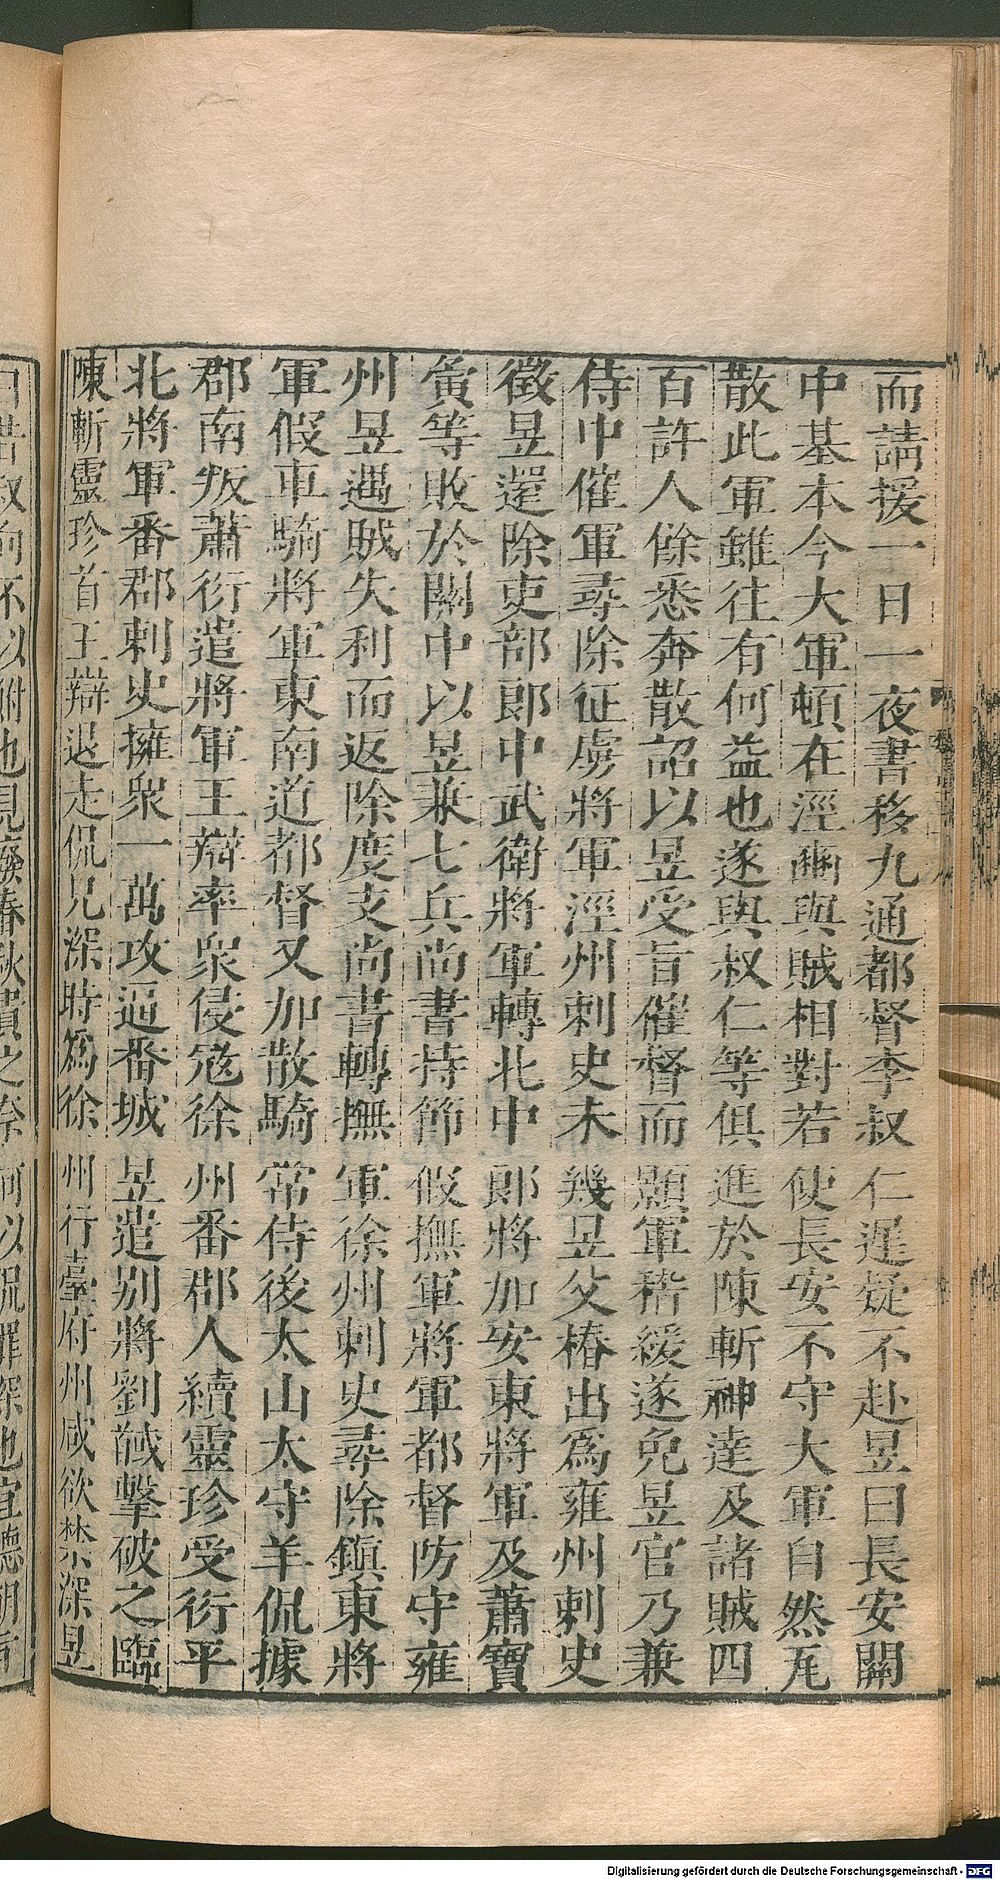 而請援一日一夜書移九通都督李叔仁遲疑不赴昱曰長安關
中基本今大軍頓在涇豳與賊相對若使長安不守大軍自然瓦
散此軍雖往有何益也遂與叔仁等俱進於陳斬神達及諸賊四
百許人餘悉奔散詔以昱受旨催督而顥軍稽緩遂免昱官乃兼
侍中催軍尋除征虜將軍涇州刺史未幾昱父椿出爲雍州刺史
徵昱還除吏部郎中武衛將軍轉北中郎將加安東將軍及蕭寶
夤等敗於關中以昱兼七兵尚書持節假撫軍將軍都督防守雍
州昱遇賊失利而返除度支尚書轉撫軍徐州刺史尋除鎮東將
軍假車騎將軍東南道都督又加散騎常侍後太山太守羊侃據
郡南叛蕭衍遣將軍王辯率衆侵寇徐州番郡人續靈珍受衍平
北將軍番郡刺史擁衆一萬攻逼番城昱遣別將劉馘擊破之臨
陳斬靈珍首王辯退走侃兄深時爲徐州行臺府州咸欲禁深昱
曰昔叔向不以鮒也見廢春秋貴之奈何以侃罪深也宜聽朝旨
Digitalisierung gefördert durch die Deutsche Forschungsgemeinschaft - DFG